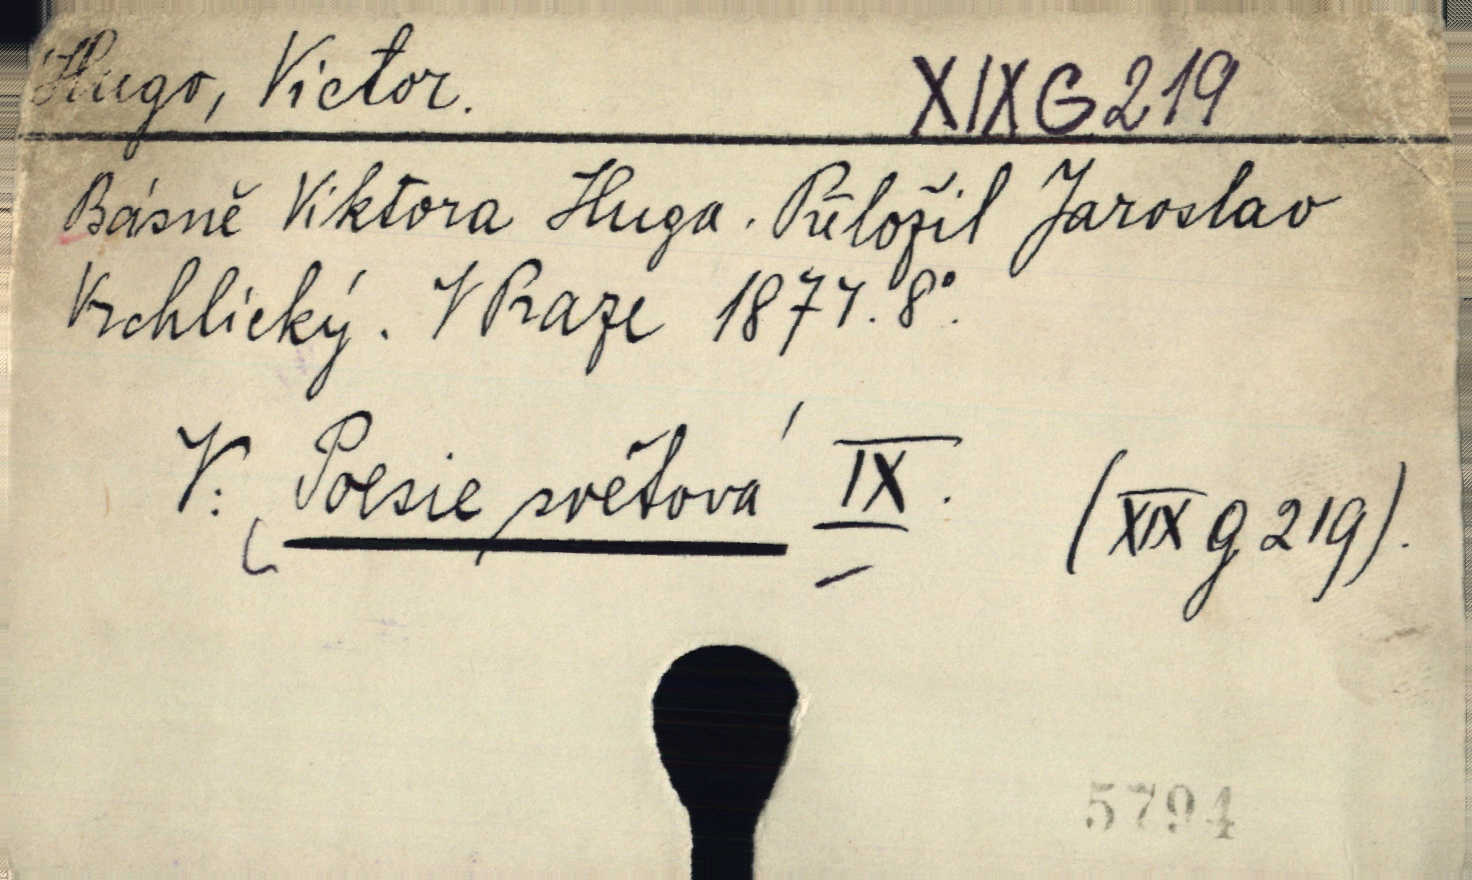 Hugo, Victor.
XIX G 219
Básně Viktora Huga. Přeložil Jaroslav
Vrchlický. V Praze 1874. 8°.
V: Poesie světová IX.
(XIX g 219).
5794